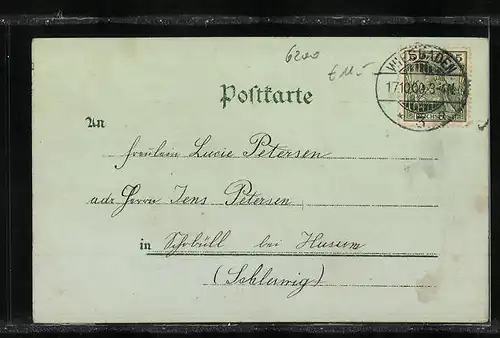 6200
€ 11.-
WIESBADEN
Postkarte
17.10.00. 3-4N.
* 3 a
An
Fräulein Lucie Petersen
adr Herrn Jens Petersen
in Schobüll bei Husum
(Schleswig)